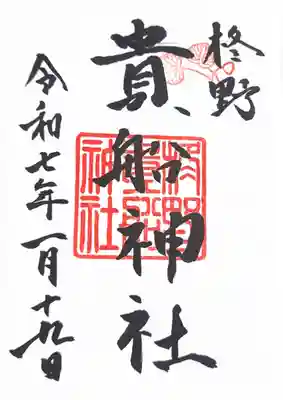 柊野
貴船神社
令和七年一月十九日
神社